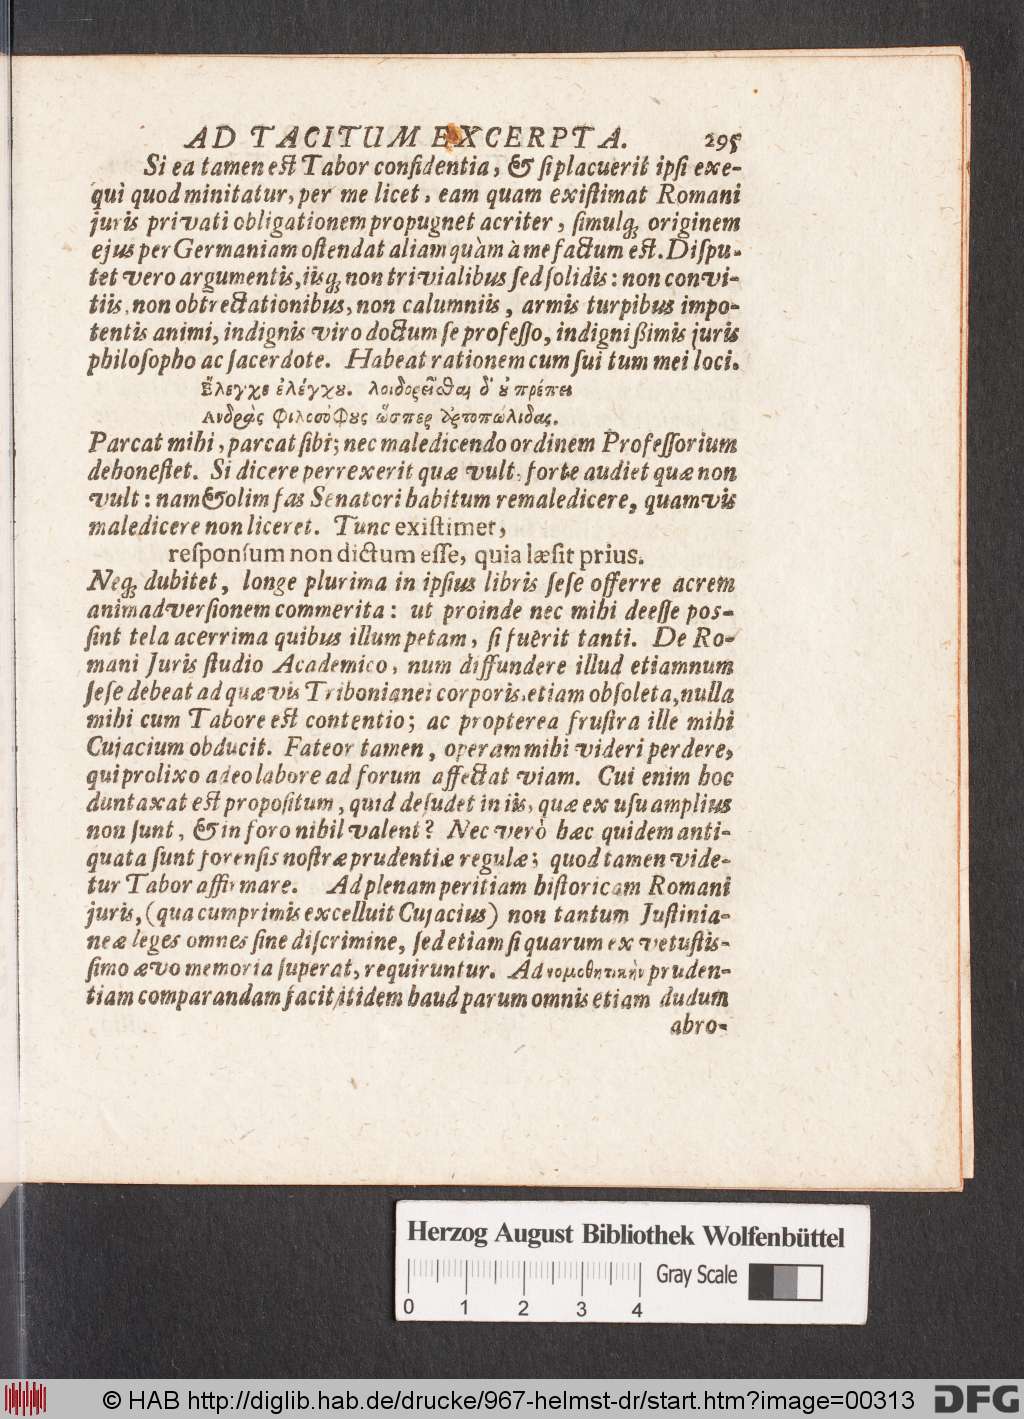 AD TACITUM EXCERPTA. 295
Si ea tamen est Tabor confidentia, & si placuerit ipsi exe-
qui quod minitatur, per me licet, eam quam existimat Romani
juris privati obligationem propugnet acriter, simulq; originem
ejus per Germaniam ostendat aliam quàm à me factum est. Dispu-
tet vero argumentis, iisq; non trivialibus sed solidis: non convi-
tiis, non obtrectationibus, non calumniis, armis turpibus impo-
tentis animi, indignis viro doctum se professo, indignissimis juris
philosopho ac sacerdote. Habeat rationem cum sui tum mei loci.
Ἔλεγχε ἐλέγχου. λοιδορεῖσθαι δ' οὐ πρέπει
Ανδρὰς φιλοσόφους ὥσπερ ἀρτοπώλιδας.
Parcat mihi, parcat sibi; nec maledicendo ordinem Professorium
dehonestet. Si dicere perrexerit quæ vult, forte audiet quæ non
vult: nam & olim fas Senatori habitum remaledicere, quamvis
maledicere non liceret. Tunc existimet,
responsum non dictum esse, quia læsit prius.
Neq; dubitet, longe plurima in ipsius libris sese offerre acrem
animadversionem commerita: ut proinde nec mihi deesse pos-
sint tela acerrima quibus illum petam, si fuerit tanti. De Ro-
mani Juris studio Academico, num diffundere illud etiamnum
sese debeat ad quævis Tribonianei corporis, etiam obsoleta, nulla
mihi cum Tabore est contentio; ac propterea frustra ille mihi
Cujacium obducit. Fateor tamen, operam mihi videri perdere,
qui prolixo adeo labore ad forum affectat viam. Cui enim hoc
duntaxat est propositum, quid desudet in iis, quæ ex usu amplius
non sunt, & in foro nihil valent? Nec verò hæc quidem anti-
quata sunt forensis nostræ prudentiæ regulæ; quod tamen vide-
tur Tabor affirmare. Ad plenam peritiam historicam Romani
juris, (qua cumprimis excelluit Cujacius) non tantum Justinia-
neæ leges omnes sine discrimine, sed etiam si quarum ex vetustis-
simo ævo memoria superat, requiruntur. Ad νομοθητικὴν pruden-
tiam comparandam facit itidem haud parum omnis etiam dudum
abro-
Herzog August Bibliothek Wolfenbüttel
Gray Scale
0 1 2 3 4
© HAB http://diglib.hab.de/drucke/967-helmst-dr/start.htm?image=00313
DFG